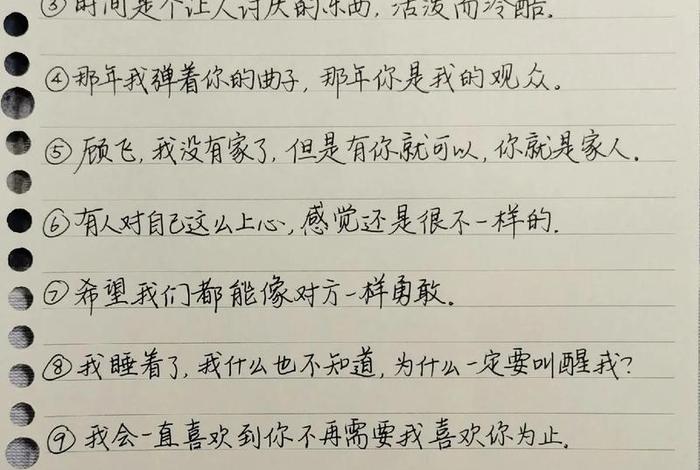 ③时间是个让人讨厌的东西,活泼而冷酷.
④那年我弹着你的曲子,那年你是我的观众。
⑤顾飞,我没有家了,但是有你就可以,你就是家人.
⑥有人对自己这么上心,感觉还是很不一样的.
⑦希望我们都能像对方一样勇敢.
⑧我睡着了,我什么也不知道,为什么一定要叫醒我?
⑨我会一直喜欢到你不再需要我喜欢你为止.